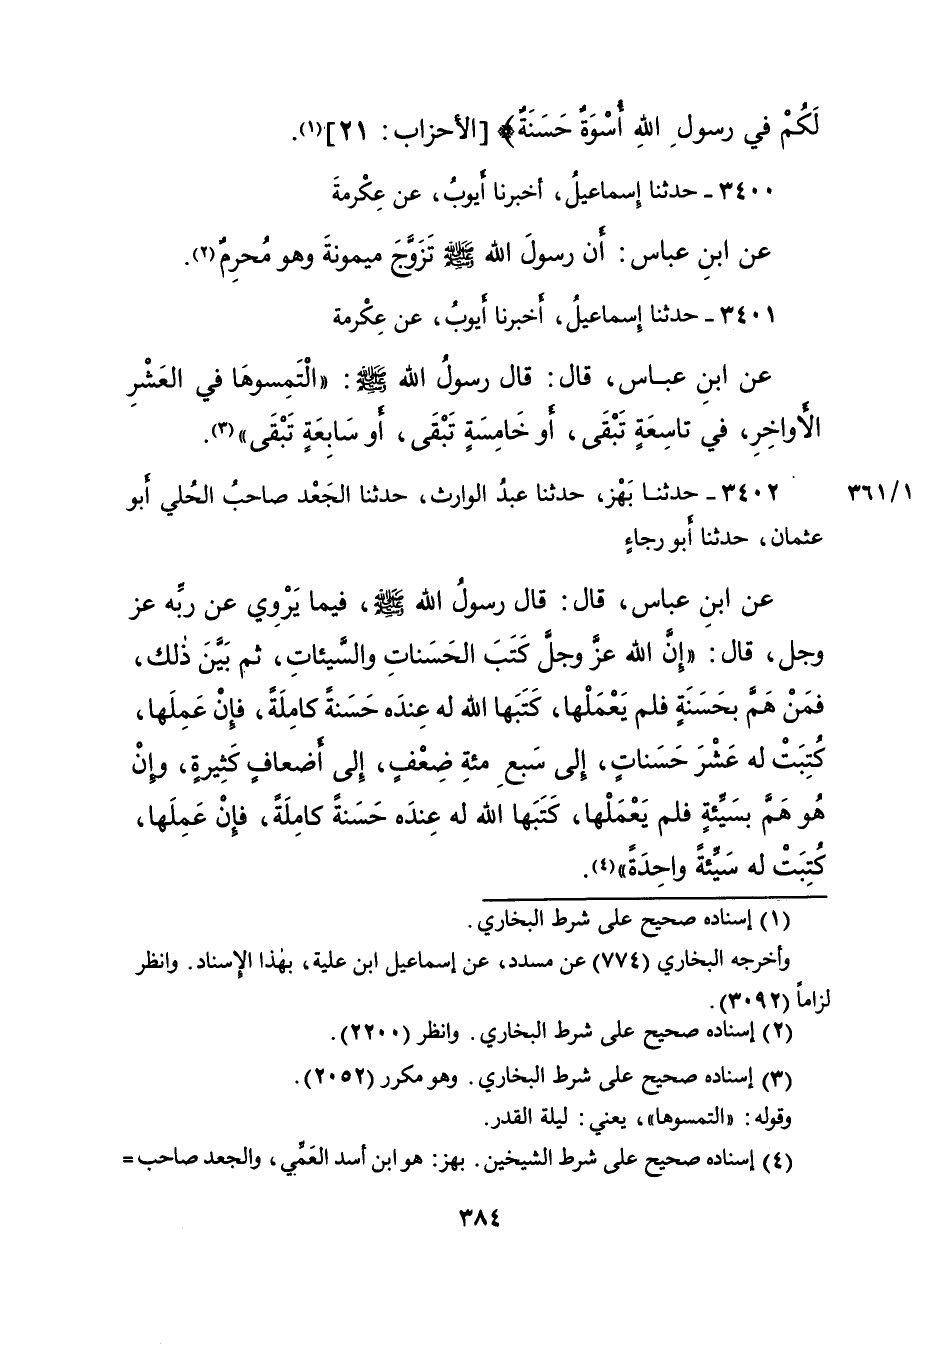 لَكُمْ في رسولِ اللهِ أُسْوَةٌ حَسَنَةٌ﴾ [الأحزاب: ٢١](١).
٣٤٠٠ ـ حدثنا إِسماعيلُ، أخبرنا أَيوبُ، عن عِكْرمةَ
عن ابنِ عباس: أَن رسولَ الله ﷺ تَزَوَّجَ ميمونةَ وهو مُحرِمٌ(٢).
٣٤٠١ ـ حدثنا إِسماعيلُ، أَخبرنا أَيوبُ، عن عِكْرمة
عن ابنِ عبـاس، قال: قال رسولُ الله ﷺ: «الْتَمِسوهَا في العَشْرِ
الأَواخِرِ، في تاسِعَةٍ تَبْقَى، أَو خَامِسَةٍ تَبْقَى، أَو سَابِعَةٍ تَبْقَى»(٣).
٣٤٠٢ ـ حدثنـا بَهْز، حدثنا عبدُ الوارث، حدثنا الجَعْد صاحبُ الحُلي أَبو ٣٦١/١
عثمان، حدثنا أَبو رجاءٍ
عن ابنِ عباس، قال: قال رسولُ الله ﷺ، فيما يَرْوي عن ربِّه عز
وجل، قال: «إِنَّ الله عزَّ وجلَّ كَتَبَ الحَسَناتِ والسَّيئاتِ، ثم بَيَّنَ ذٰلك،
فمَنْ هَمَّ بحَسَنَةٍ فلم يَعْمَلْها، كَتَبَها الله له عِندَه حَسَنةً كامِلَةً، فإِنْ عَمِلَها،
كُتِبَتْ له عَشْرَ حَسَناتٍ، إِلى سَبعِ مئةِ ضِعْفٍ، إِلى أَضعافٍ كَثِيرةٍ، وإِنْ
هُو هَمَّ بسَيِّئةٍ فلم يَعْمَلْها، كَتَبَها الله له عِندَه حَسَنةً كامِلَةً، فإِنْ عَمِلَها،
كُتِبَتْ له سَيِّئةً واحِدَةً»(٤).
(١) إسناده صحيح على شرط البخاري.
وأخرجه البخاري (٧٧٤) عن مسدد، عن إسماعيل ابن علية، بهٰذا الإِسناد. وانظر
لزاماً (٣٠٩٢).
(٢) إسناده صحيح على شرط البخاري. وانظر (٢٢٠٠).
(٣) إسناده صحيح على شرط البخاري. وهو مكرر (٢٠٥٢).
وقوله: «التمسوها»، يعني: ليلة القدر.
(٤) إسناده صحيح على شرط الشيخين. بهز: هو ابن أسد العَمِّي، والجعد صاحب=
٣٨٤